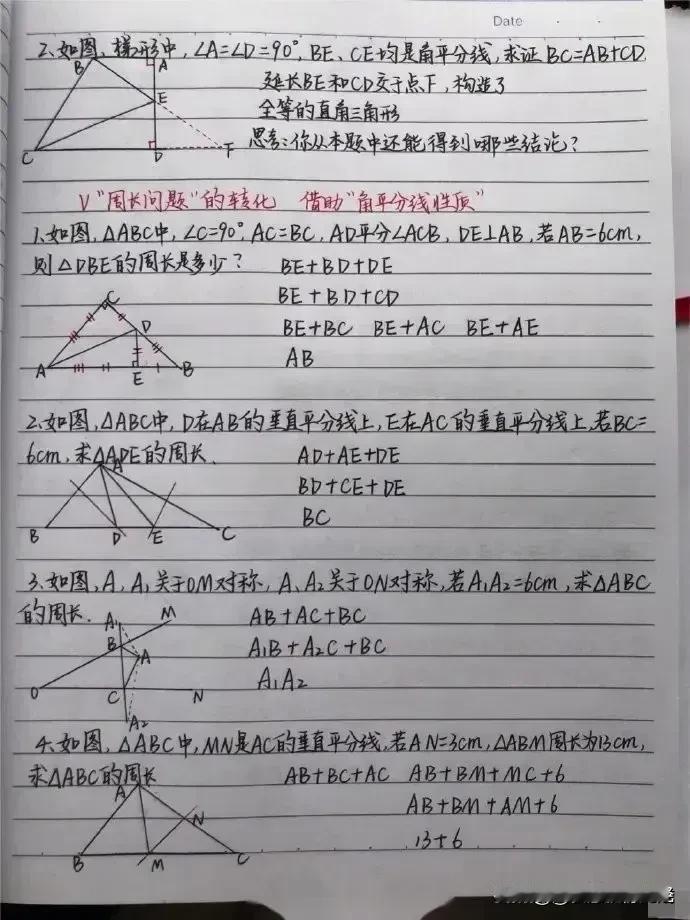 Date
2、如图,梯形中,∠A=∠D=90°,BE、CE均是角平分线,求证BC=AB+CD.
延长BE和CD交于点F,构造了
全等的直角三角形
思考:你从本题中还能得到哪些结论?
B A E C D F
V "周长问题"的转化 借助"角平分线性质"
1、如图,△ABC中,∠C=90°,AC=BC,AD平分∠ACB,DE⊥AB,若AB=6cm,
则△DBE的周长是多少? BE+BD+DE
BE+BD+CD
BE+BC BE+AC BE+AE
AB
C D A E B
2、如图,△ABC中,D在AB的垂直平分线上,E在AC的垂直平分线上,若BC=
6cm,求△ADE的周长. AD+AE+DE
BD+CE+DE
BC
A B D E C
3、如图,A、A1关于OM对称,A、A2关于ON对称,若A1A2=6cm,求△ABC
的周长. AB+AC+BC
A1B+A2C+BC
A1A2
A1 M B A O C N A2
4、如图,△ABC中,MN是AC的垂直平分线,若AN=3cm,△ABM周长为13cm,
求△ABC的周长 AB+BC+AC AB+BM+MC+6
AB+BM+AM+6
13+6
A N B M C